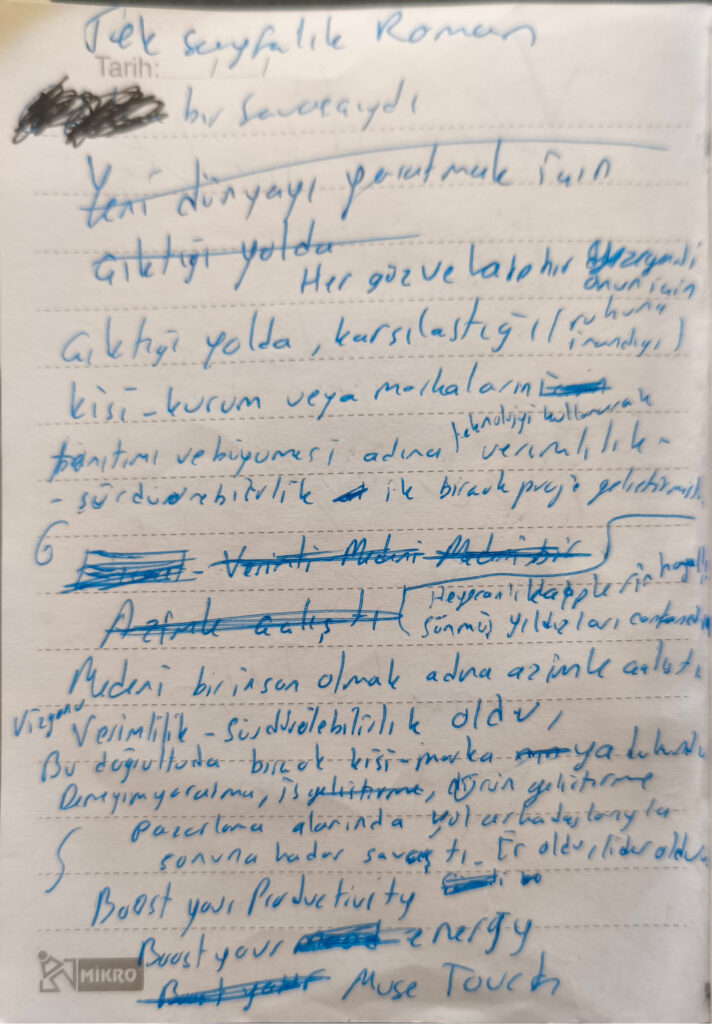 Tek sayfalık Roman
Tarih: / /
bir savaşçıydı
Yeni dünyayı yaratmak için
çıktığı yolda
Her göz ve kalp bir
onun için
çıktığı yolda, karşılaştığı (ruhuna inandığı)
kişi-kurum veya markaların
teknolojiyi kullanarak
tanıtımı ve büyümesi adına verimlilik-
-sürdürebilirlik ile birçok proje geliştirmiş..
- Verimli Medeni Medeni bir
Azimle çalıştı
kalplerin hayali
Sönmüş yıldızları
Medeni bir insan olmak adına azimle çalıştı
Vizyonu Verimlilik-Sürdürülebilirlik oldu,
Bu doğrultuda birçok kişi-marka ya dokundu
Deneyim yaratma, iş geliştirme, ürün geliştirme
pazarlama alanında yol arkadaşlarıyla
sonuna kadar savaştı. Er oldu, lider oldu
Boost your Productivity
Boost your energy
Boost your Muse Touch
MİKRO